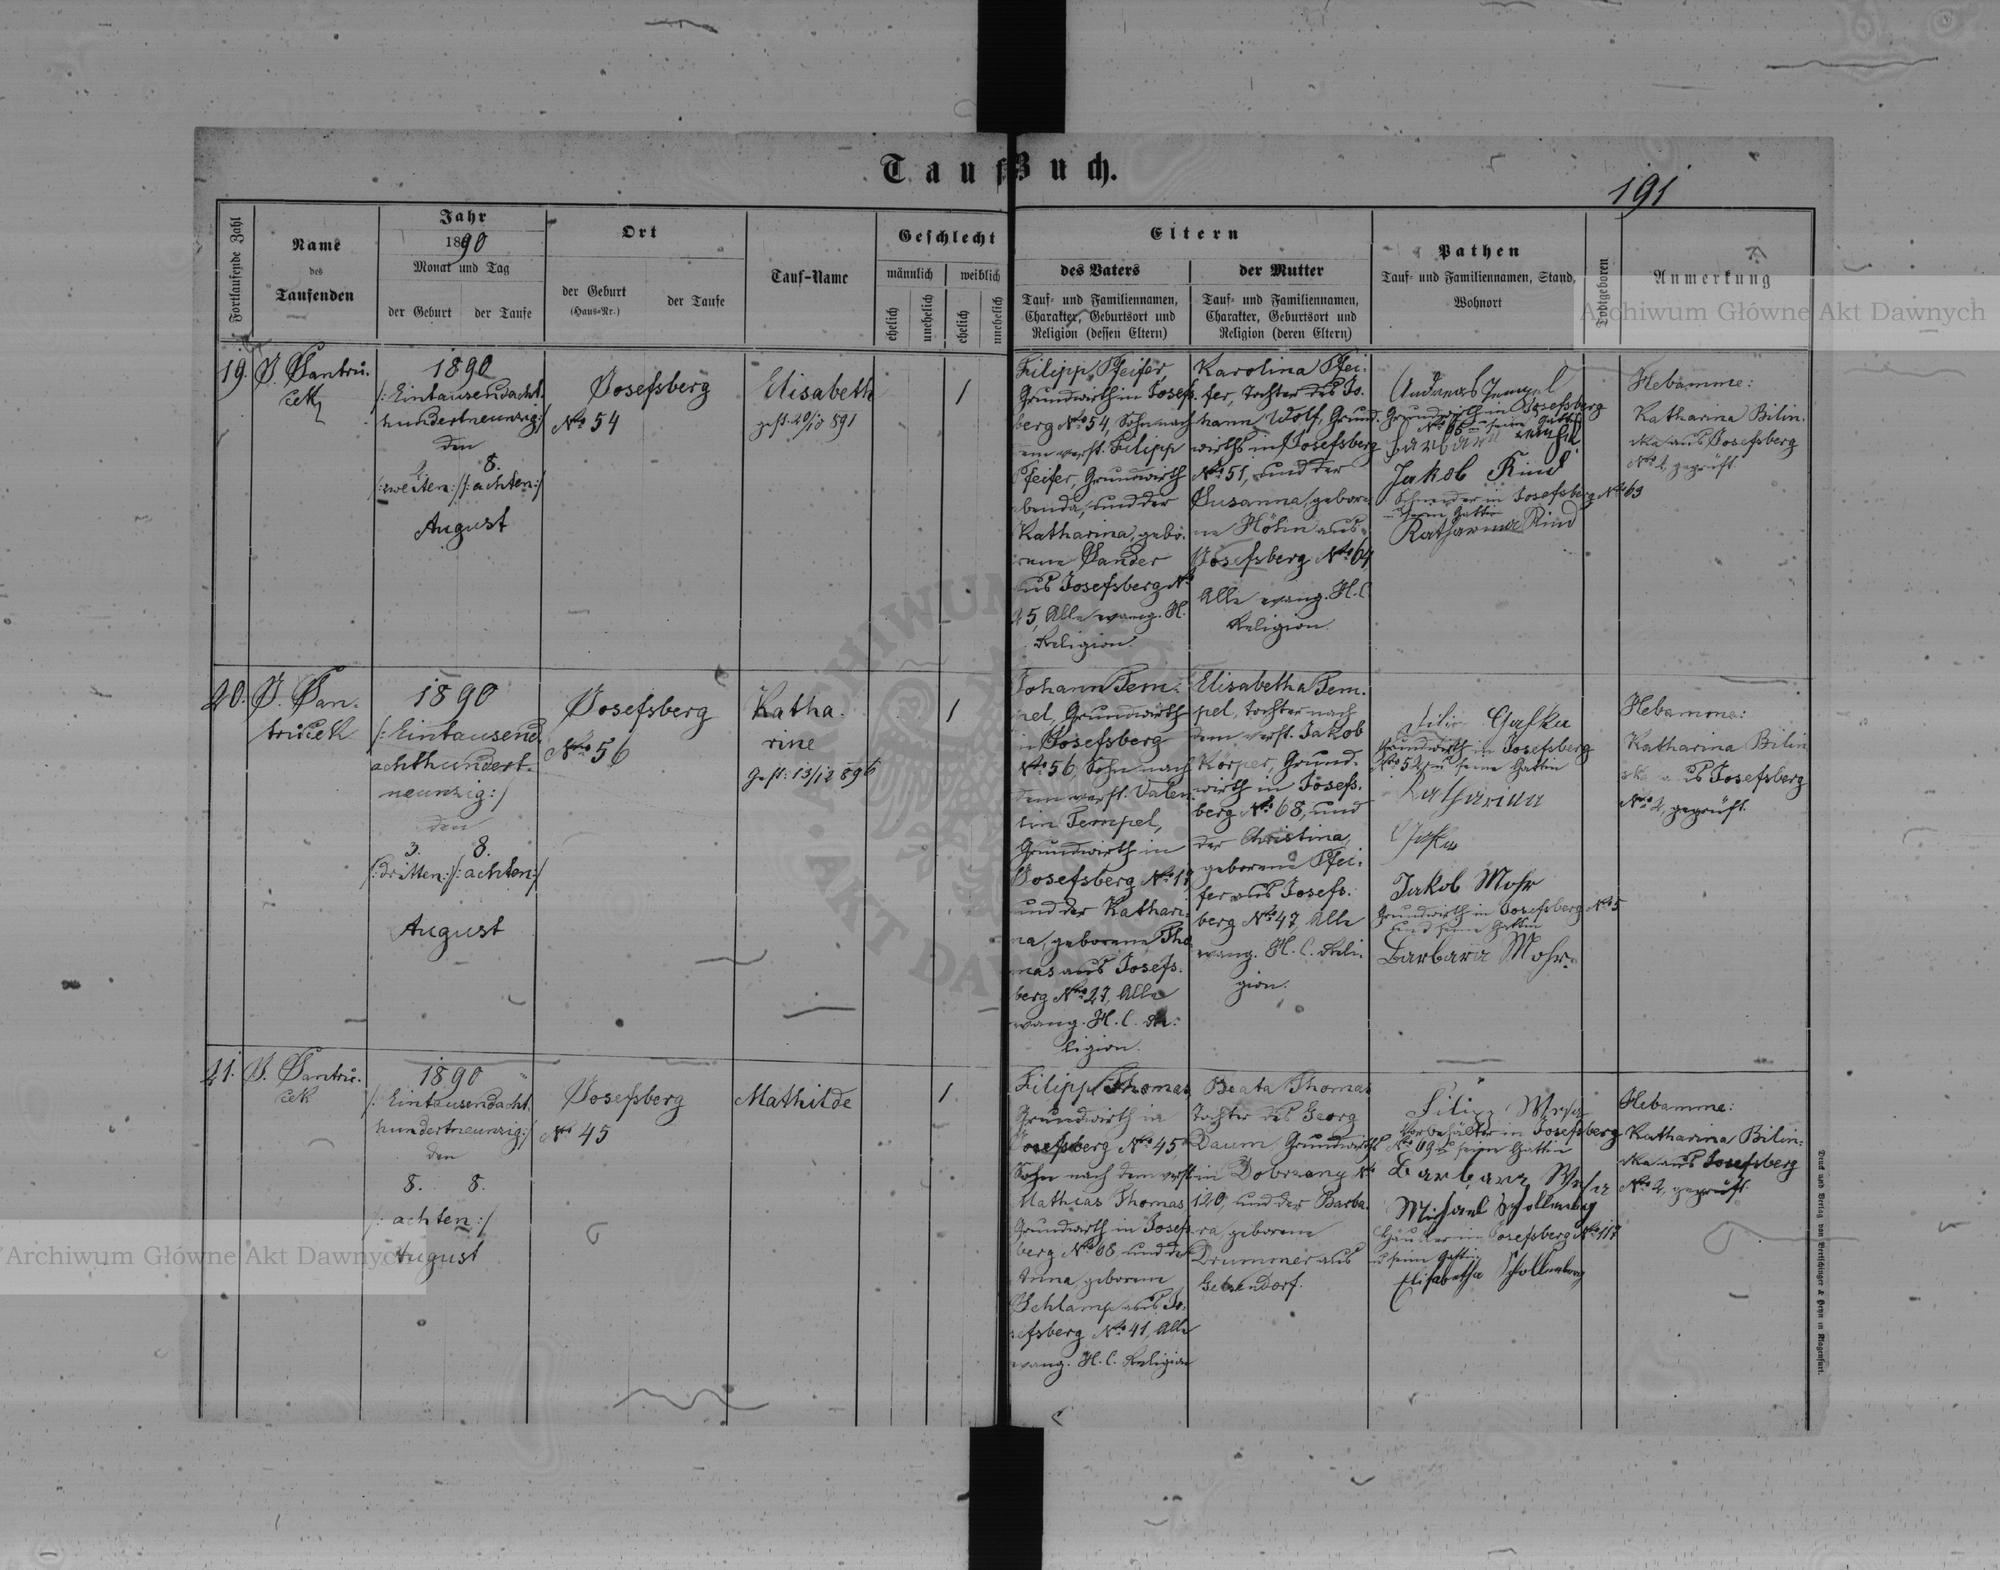 Tauf-Buch.
191
Fortlaufende Zahl
Name
des
Taufenden
Jahr
1890
Monat und Tag
der Geburt
der Taufe
Ort
der Geburt
(Haus-Nr.)
der Taufe
Tauf-Name
Geschlecht
männlich
weiblich
ehelich
unehelich
ehelich
unehelich
Eltern
des Vaters
Tauf- und Familiennamen,
Charakter, Geburtsort und
Religion (dessen Eltern)
der Mutter
Tauf- und Familiennamen,
Charakter, Geburtsort und
Religion (deren Eltern)
Pathen
Tauf- und Familiennamen, Stand,
Wohnort
Todtgeboren
Anmerkung
Archiwum Główne Akt Dawnych
19.
J. Santru-
cek
1890
/: Eintausendacht-
hundertneunzig :/
den
2. 8.
/: zweiten :/ /: achten :/
August
Josefsberg
No 54
Elisabeth
gest. 20/10 891
1
Filipp Pfeifer
Grundwirth in Josefs-
berg No 54, Sohn nach
dem verst. Filipp
Pfeifer, Grundwirth
ebenda, und der
Katharina, gebo-
rene Sander
aus Josefsberg No
45, Alle evang. H.
Religion.
Karolina Pfei-
fer, Tochter des Jo-
hann Wolf, Grund-
wirths in Josefsberg
No 51, und der
Susanna, gebore-
ne Höhn aus
Josefsberg No 64
Alle evang. H. C.
Religion.
Andreas Tempel
Grundwirth in Josefsberg
No seine Gattin
Barbara
Jakob Kind
Schneider in Josefsberg No 69
Gattin
Katharina Kind
Hebamme:
Katharina Bilin-
ska aus Josefsberg
No 2, geprüft.
20.
J. San-
trucek
1890
/: Eintausend-
achthundert-
neunzig :/
den
3. 8.
/: dritten :/ /: achten :/
August
Josefsberg
No 56
Katha-
rine
Gest: 13/12 896
1
Johann Tem-
pel, Grundwirth
in Josefsberg
No 56, Sohn nach
dem verst. Valen-
tin Tempel,
Grundwirth in
Josefsberg No 17
und der Kathari-
na, geborene Tho-
mas aus Josefs-
berg No 27, Alle
evang. H. C. Re-
ligion.
Elisabetha Tem-
pel, Tochter nach
dem verst. Jakob
Körper, Grund-
wirth in Josefs-
berg No 68, und
der Christina,
geborene Pfei-
fer aus Josefs-
berg No 47, Alle
evang. H. C. Reli-
gion.
Filip Gafka
Grundwirth in Josefsberg
No 52, u seine Gattin
Katharina
Gafka
Jakob Mohr
Grundwirth in Josefsberg No 5
und seine Gattin
Barbara Mohr.
Hebamme:
Katharina Bilin-
ska aus Josefsberg
No 2, geprüft.
21.
J. Santru-
cek
1890
/: Eintausendacht-
hundertneunzig :/
den
8. 8.
/: achten :/
August
Josefsberg
No 45
Mathilde
1
Filipp Thomas
Grundwirth in
Josefsberg No 45
Sohn nach dem verst.
Mathias Thomas
Grundwirth in Josefs-
berg No 68, und der
Anna geborene
Schlamp aus Jo-
sefsberg No 41, Alle
evang. H. C. Religion
Beata Thomas
Tochter des Georg
Daum, Grundwirths
in Dobrzany No
120, und der Barba-
ra, geborene
Drummer aus
Gelsendorf.
Filipp
in Josefsberg
No 69 u seine Gattin
Barbara
Michael Schollenberg
Häusler in Josefsberg No 117
u seine Gattin
Elisabetha Schollenberg
Hebamme:
Katharina Bilin-
ska aus Josefsberg
No 2, geprüft.
Archiwum Główne Akt Dawnych
ARCHIWUM
AKT DAWNYCH
Druck und Verlag von Bertschinger & Heyn in Klagenfurt.